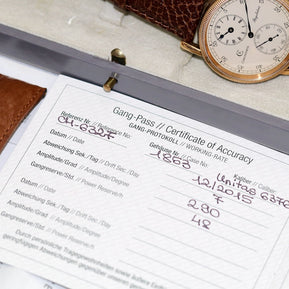 Gang-Pass // Certificate of Accuracy
GANG-PROTOKOLL // WORKING-RATE
Referenz Nr // Reference No: Gehäuse Nr // Case No: Kaliber // Caliber
CH-6327 1863 Unitas 6376
Datum // Date 12/2015
Abweichung Sek./Tag // Drift Sec./Day 7
Amplitude/Grad // Amplitude/Degree 280
Gangreserve/Std. // Power Reserve/h 48
Datum // Date
Abweichung Sek./Tag // Drift Sec./Day
Amplitude/Grad // Amplitude/Degree
Gangreserve/Std. // Power Reserve/h
Durch persönliche Tragegewohnheiten sowie äußere
geringfügigen Abweichungen gegenüber unseren